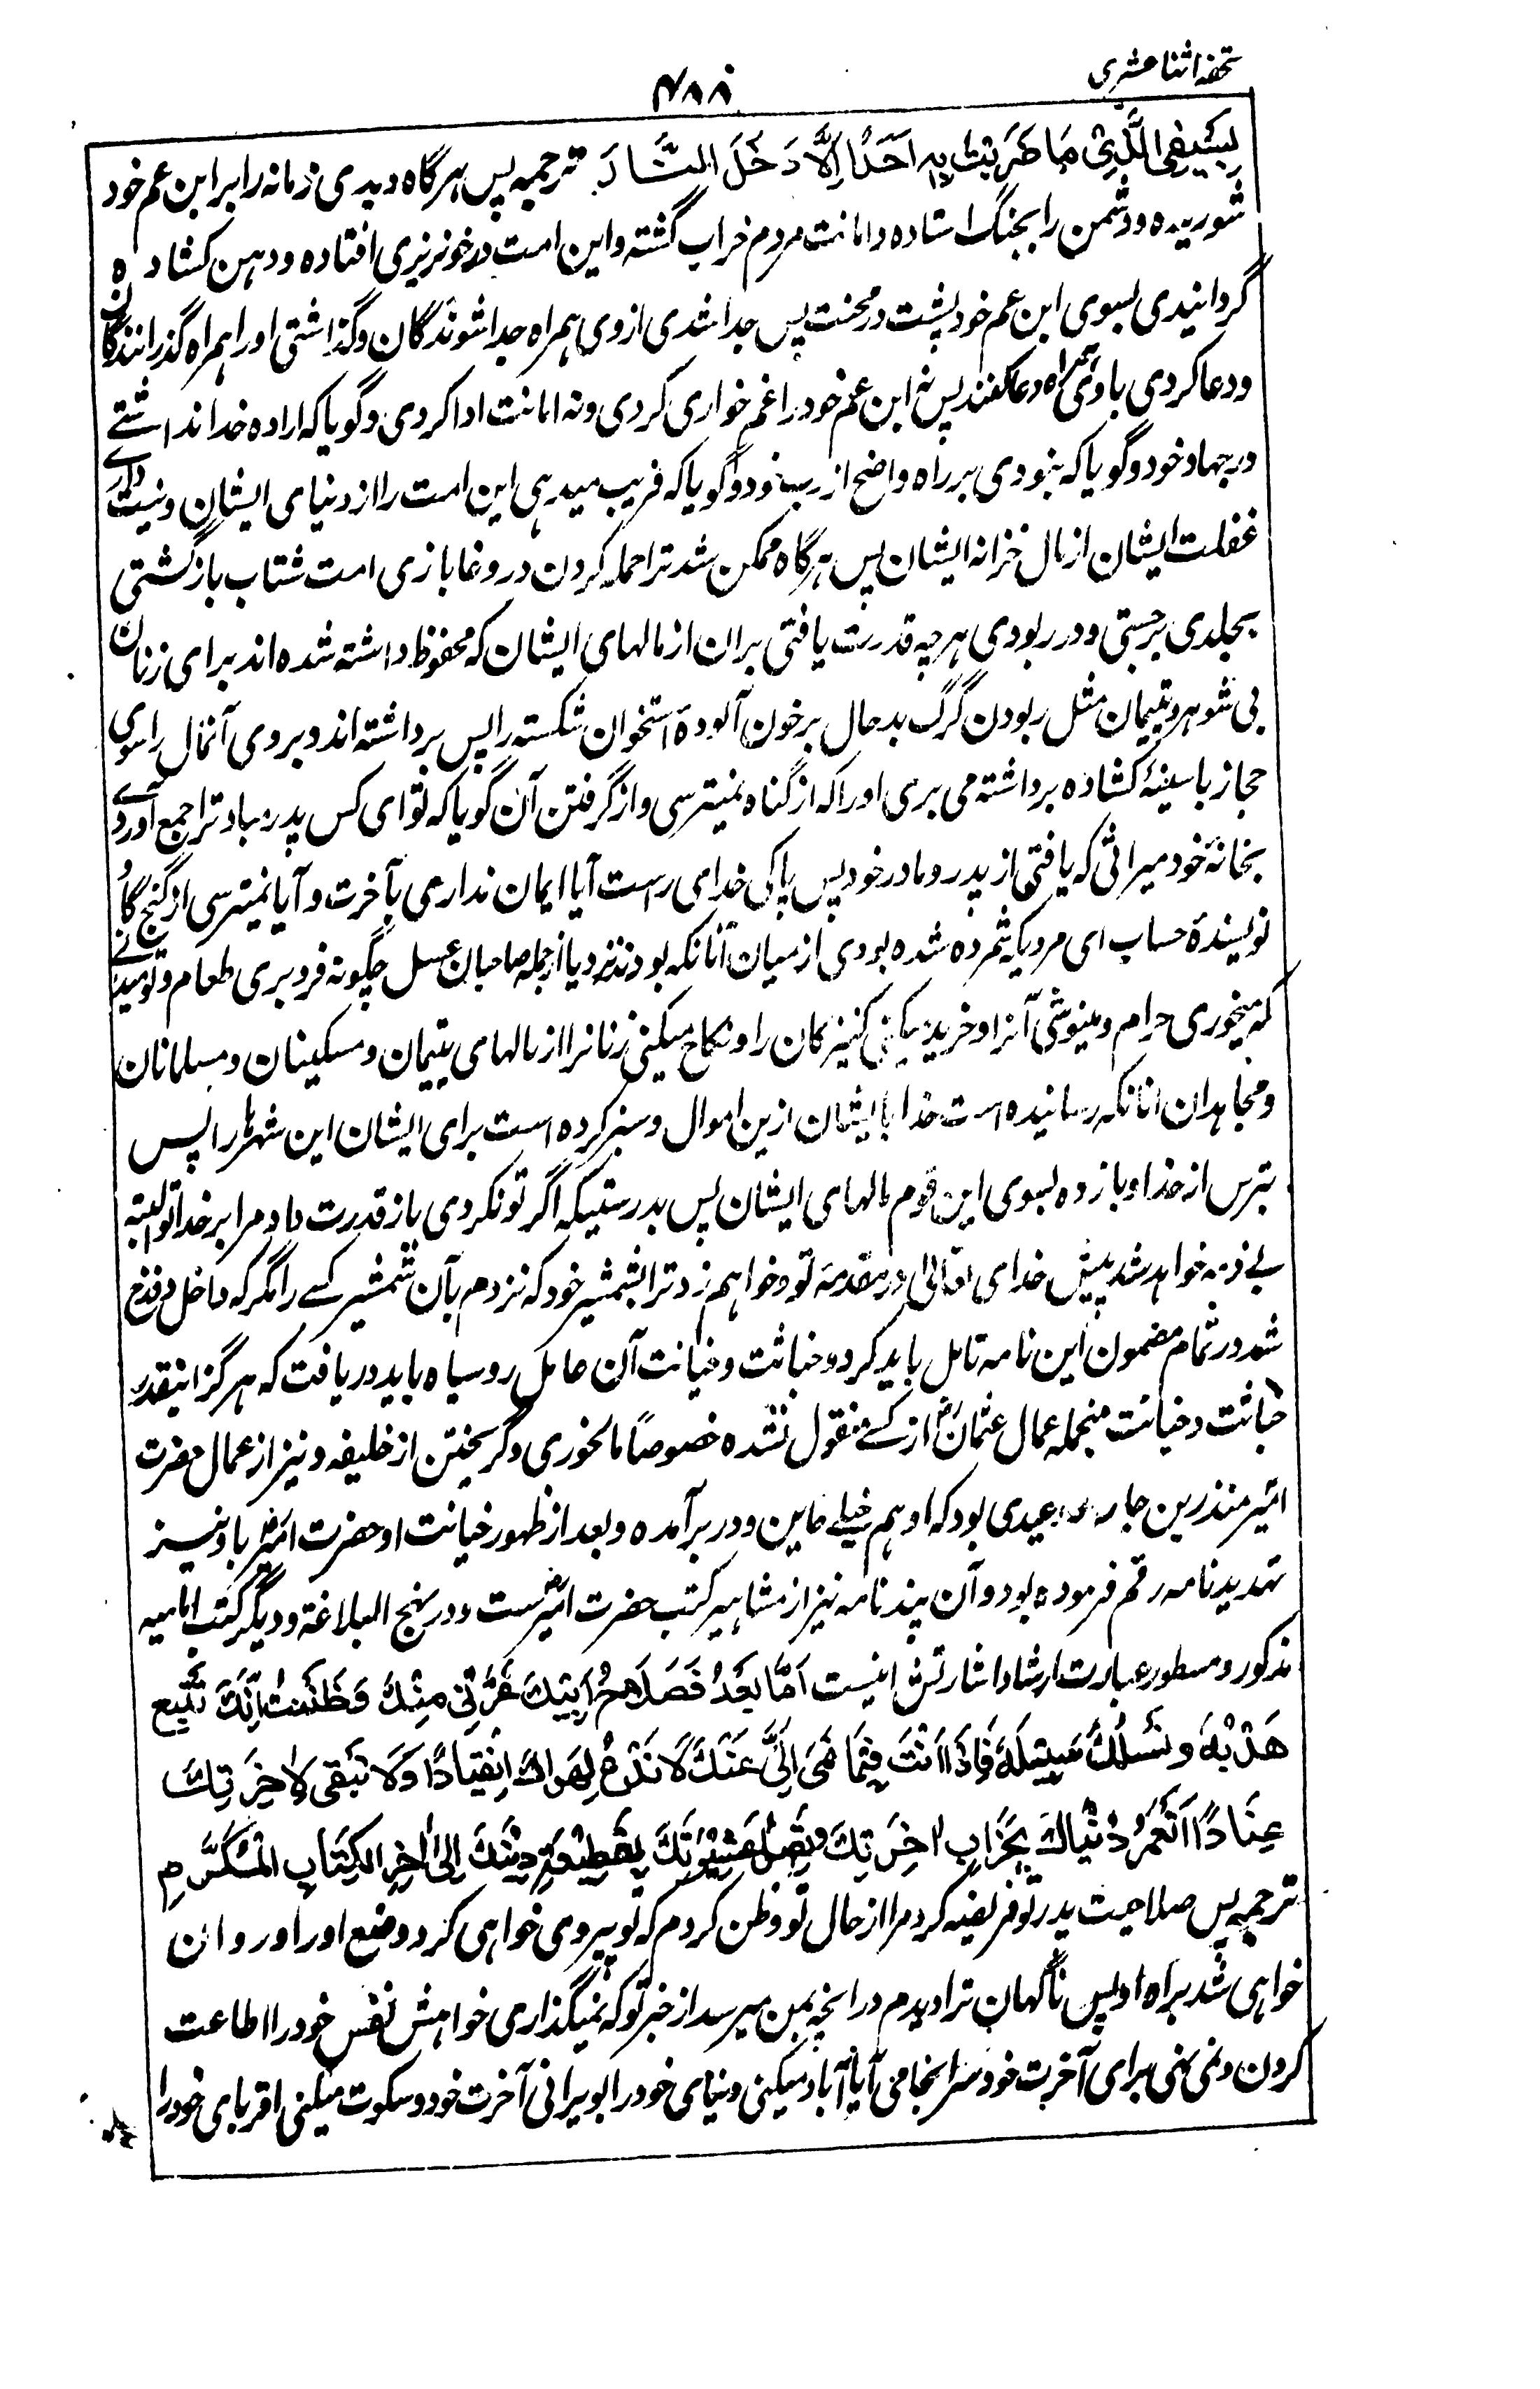 تحفه اثنا عشری
۴۸۸
لِسَیْفِی الَّذِیْ مَا ضَرَبْتُ بِهٖ اَحَدًا اِلَّا دَخَلَ النَّارَ ترجمه پس هرگاه دیدی زمانه را بر ابن عم خود
شوریده و دشمن را بجنگ استاده و امانت مردم خراب گشته و این امت در خونریزی افتاده و دهن کشاده
گردانیدی بسوی ابن عم خود پشت در محنت پس جدا شدی از وی همراه جدا شوندگان و گذاشتی او را همراه گذرانندگان
و دعا کردی با وی همراه دعا کنند پس نه ابن عم خود را غم خواری کردی و نه امانت ادا کردی و گویا که اراده خدا نداشتے
در جهاد خود و گویا که نبودی بر راه واضح از رب خود و گویا که فریب میدهی این امت را از دنیای ایشان و نیت دارے
غفلت ایشان از مال خزانه ایشان پس هرگاه ممکن شد ترا حمله کردن در و غا بازی امت شتاب بازگشتی
بجلدی برجستی و در ربودی هرچه قدرت یافتی بران از مالهای ایشان که محفوظ داشته شده اند برای زنان
بی شوهر و یتیمان مثل ربودن گرگ بدحال بر خون آلودهٔ استخوان شکسته را پس برداشته اند و بروی آنمال را سوی
حجاز با سینهٔ کشاده برداشته می بری او را که از گناه نمیترسی و از گرفتن آن گویا که تو ای کس پدر مباد ترا جمع آوردے
بخانهٔ خود میراثی که یافتی از پدر و مادر خود پس پاکی خدای راست آیا ایمان نداری بآخرت و آیا نمیترسی از
نویسندهٔ حساب ای مردیکه شمرده شده بودی از میان آنانکه بودند نزد یا از جمله صاحبان عسل چگونه فرو بری طعام و تو میدانے
که میخوری حرام و مینوشی آنرا و خرید میکنی کنیزکان را و نکاح میکنی زنانرا از مالهای یتیمان و مسکینان و مسلمانان
و مجاهدان آنانکه رسانیده است خدا بایشان ازین اموال و سبز کرده است برای ایشان این شهرها را پس
بترس از خدا و باز ده بسوی این قوم مالهای ایشان پس بدرستیکه اگر تو نکردی باز قدرت داد مرا بر خدا تو البته
بے ذمه خواهد شد پیش خدای تعالی در مقدمه تو و خواهم زد ترا بشمشیر خود که نزدم بآن شمشیر کسے را مگر که داخل دوزخ
شد در تمام مضمون این نامه تامل باید کرد و خباثت و خیانت آن عامل روسیاه باید دریافت که هرگز اینقدر
خباثت و خیانت منجمله عمال عثمان رض از کسے منقول نشده خصوصاً مالخوری و گریختن از خلیفه و نیز از عمال حضرت
امیر منذر بن جارود عبدی بود که او هم خیلے خاین و در برآمده و بعد از ظهور خیانت او حضرت امیر رض باو نیز
تهدید نامه رقم فرموده بود و آن پند نامه نیز از مشاهیر کتب حضرت امیر رض ست و در نهج البلاغة و دیگر کتب امامیه
مذکور و مسطور عبارت ارشاد اشارتش اینست اَمَّا بَعْدُ فَصَلَاحُ اَبِیْكَ غَرَّنِیْ مِنْكَ وَظَنَنْتُ اَنَّكَ تَتَّبِعُ
هَدْیَهٗ وَتَسْلُكُ سَبِیْلَهٗ فَاِذَا اَنْتَ فِیْمَا رُقِیَ اِلَیَّ عَنْكَ لَا تَدَعُ لِهَوَاكَ اِنْقِیَادًا وَلَا تُبْقِی لِاٰخِرَتِكَ
عِتَادًا اَتَعْمُرُ دُنْیَاكَ بِخَرَابِ اٰخِرَتِكَ وَتَصِلُ عَشِیْرَتَكَ بِقَطِیْعَةِ دِیْنِكَ اِلٰی اٰخِرِ الْكِتَابِ الْمُكَرَّمِ
ترجمه پس صلاحیت پدر تو فریفته کرد مرا از حال تو و ظن کردم که تو پیروی خواهی کرد وضع او را و روان
خواهی شد براه او پس ناگهان ترا دیدم در انچه بمن میرسد از خبر تو که نمیگذاری خواهش نفس خود را اطاعت
کردن و نمی نهی برای آخرت خود سرانجامی آیا آباد میکنی دنیای خود را بویرانی آخرت خود و سکوت میکنی اقربای خود را